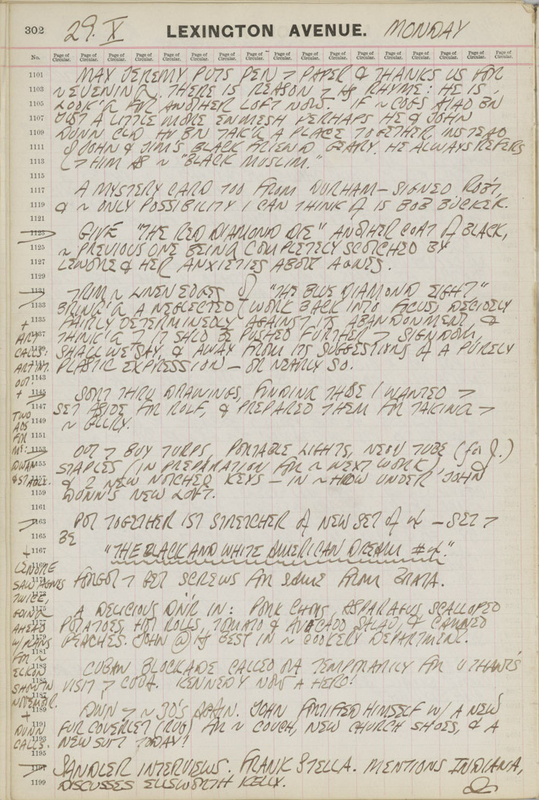 302
29. X
LEXINGTON AVENUE.
MONDAY
No. Page of Circular. Page of Circular. Page of Circular. Page of Circular. Page of Circular. Page of Circular. Page of Circular. Page of Circular. Page of Circular. Page of Circular. Page of Circular. Page of Circular.
1101 MAX JEREMY PUTS PEN > PAPER & THANKS US FOR
1103 ~ EVENING. THERE IS REASON > HIS RHYME: HE IS
1105 LOOK'G FOR ANOTHER LOFT NOW. IF ~ COPS HAD BN
1107 JUST A LITTLE MORE ENMESH PERHAPS HE & JOHN
1109 DUNN CLD HV BN TAK'G A PLACE TOGETHER INSTEAD
1111 JOHN & JIM'S BLACK FRIEND GEARY. HE ALWAYS REFERS
1113 > HIM AS ~ "BLACK MUSLIM."
1115
1117 A MYSTERY CARD TOO FROM DURHAM — SIGNED ROB'T,
1119 & ~ ONLY POSSIBILITY I CAN THINK OF IS BOB BUCKER.
1121
1123 GIVE "THE RED DIAMOND DIE" ANOTHER COAT OF BLACK,
1125 ~ PREVIOUS ONE BEING COMPLETELY SCOTCHED BY
1127 LENORE & HER ANXIETIES ABOUT AGNES.
1129
1131 TRIM ~ LINEN EDGES OF "THE BLUE DIAMOND EIGHT"
BRING'G A NEGLECTED WORK BACK INTO FOCUS, DECIDELY
1135 FAIRLY DETERMINEDLY AGAINST ITS ABANDONMENT, &
THINK'G > IT SHLD BE PUSHED FURTHER > SIGNDOM
SHALL WE SAY & AWAY FROM ITS SUGGESTIONS OF A PURELY
PLASTIC EXPRESSION — OR NEARLY SO.
+
ART
CALLS:
ART INT.
OUT
1143
+
SORT THRU DRAWINGS, FINDING THOSE I WANTED >
1147 SET ASIDE FOR ROLF, & PREPARED THEM FOR TAKING >
1149 ~ GLLRY.
1151
TWO
ADS
FOR
ME:
DWAN
& STABLE.
OUT > BUY TURPS, PORTABLE LIGHTS, NEON TUBE (for J.)
STAPLES (IN PREPARATION FOR ~ NEXT WORK)
& 2 NEW NOTCHED KEYS — IN ~ HDW UNDER JOHN
1159 DUNN'S NEW LOFT.
1161
1163 PUT TOGETHER 1ST STRETCHER OF NEW SET OF 4 — SET >
1165 BE
1167 "THE BLACK AND WHITE AMERICAN DREAM #4."
+
LENORE
SAW AGNES
TWICE
AHEAD
W/ PLANS
FOR ~
SHOW IN
NOVEMBER.
+
DUNN
CALLS.
FORGOT > GET SCREWS FOR SAME FROM BRATA.
A DELICIOUS DIN'R IN: PORK CHOPS, ASPARAGUS SCALLOPED
POTATOES, HOT ROLLS, TOMATO & AVOCADO SALAD, & CANNED
PEACHES. JOHN @ HIS BEST IN ~ COOKERY DEPARTMENT.
1181
1183 CUBAN BLOCKADE CALLED OFF TEMPORARILY FOR U THANT'S
VISIT > CUBA. KENNEDY NOW A HERO!
DOWN > ~ 30'S AGAIN. JOHN FORTIFIED HIMSELF W/ A NEW
1191 FUR COVERLET (RUG) FOR ~ COUCH, NEW CHURCH SHOES, & A
1193 NEW SUIT TODAY!
1195
1197 SANDLER INTERVIEWS. FRANK STELLA. MENTIONS INDIANA,
1199 DISCUSSES ELLSWORTH KELLY.